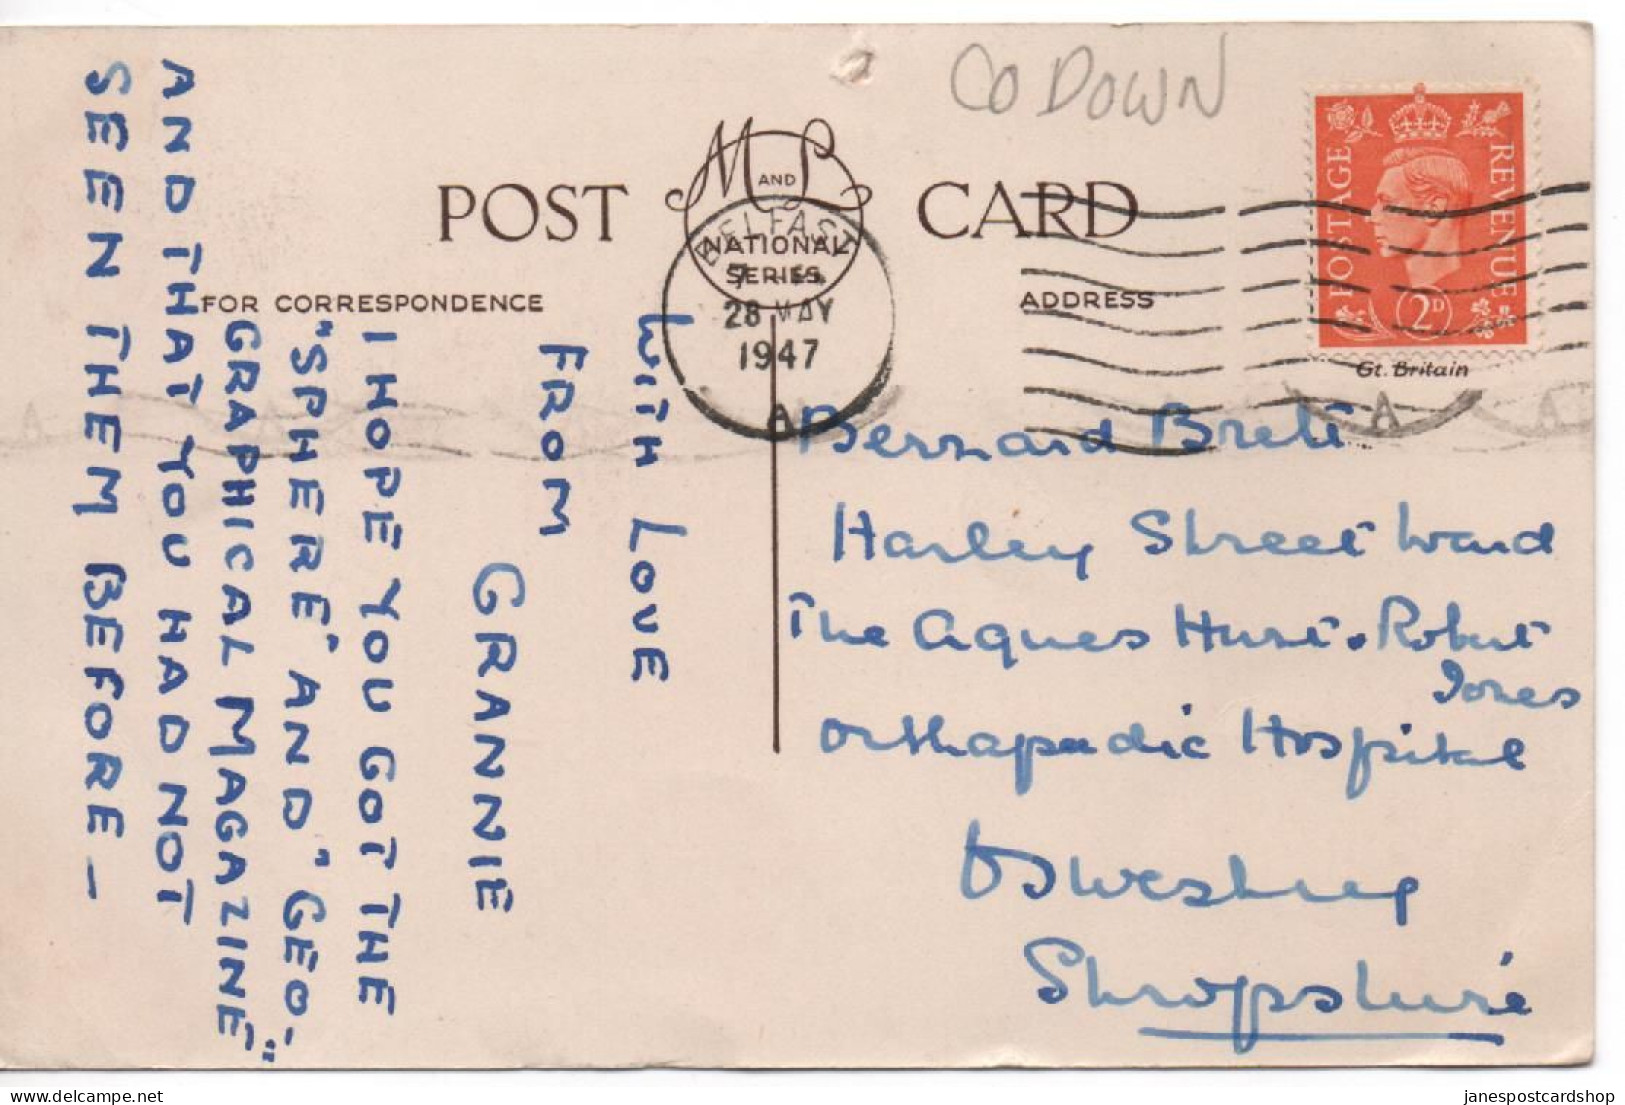 CO DOWN
POST CARD
M AND L
NATIONAL
SERIES
BELFAST
28 MAY
1947
A
FOR CORRESPONDENCE
ADDRESS
POSTAGE
REVENUE
2D
Gt. Britain
A
A
WITH LOVE
FROM
GRANNIE
I HOPE YOU GOT THE
"SPHERE" AND "GEO-
GRAPHICAL MAGAZINE"
AND THAT YOU HAD NOT
SEEN THEM BEFORE -
Bernard Brett
Harley Street Ward
The Agnes Hunt . Robert
Jones
Orthapaedic Hospital
Oswestry
Shropshire
janespostcardshop
© delcampe.net